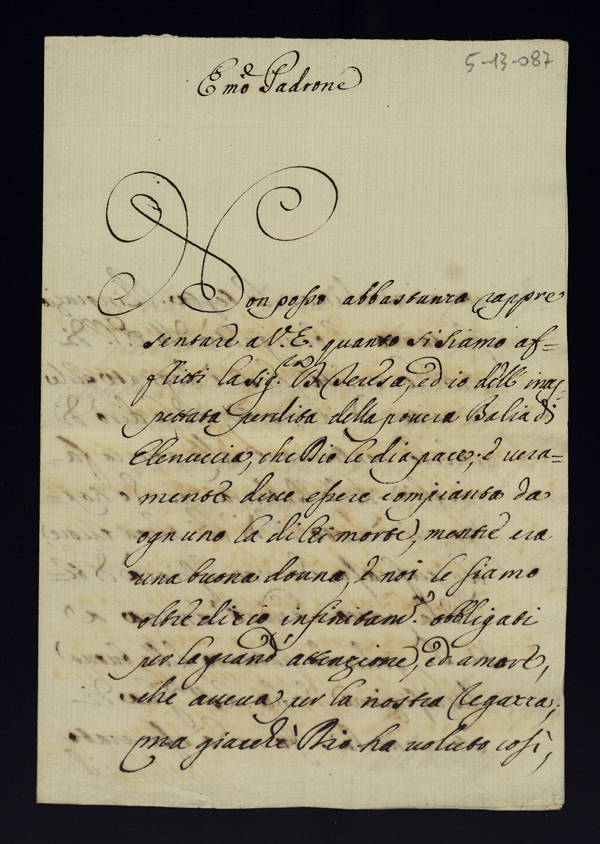 5-13-087
Emo Padrone
Non posso abbastanza rappre
sentare a V. E. quanto si siamo af=
flitti la Sig.ra D. Teresa, ed io dell' inas=
pettata perdita della povera Balia di
Elenuccia, che Dio le dia pace; è vera=
mente deve essere compianta da
ogn uno la di lei morte, mentre era
una buona donna, è noi le siamo
oltre di cio infinitam.te obbligati
per la grand' attenzione, ed amore,
che aveva per la nostra
ma giache Dio ha voluto così,